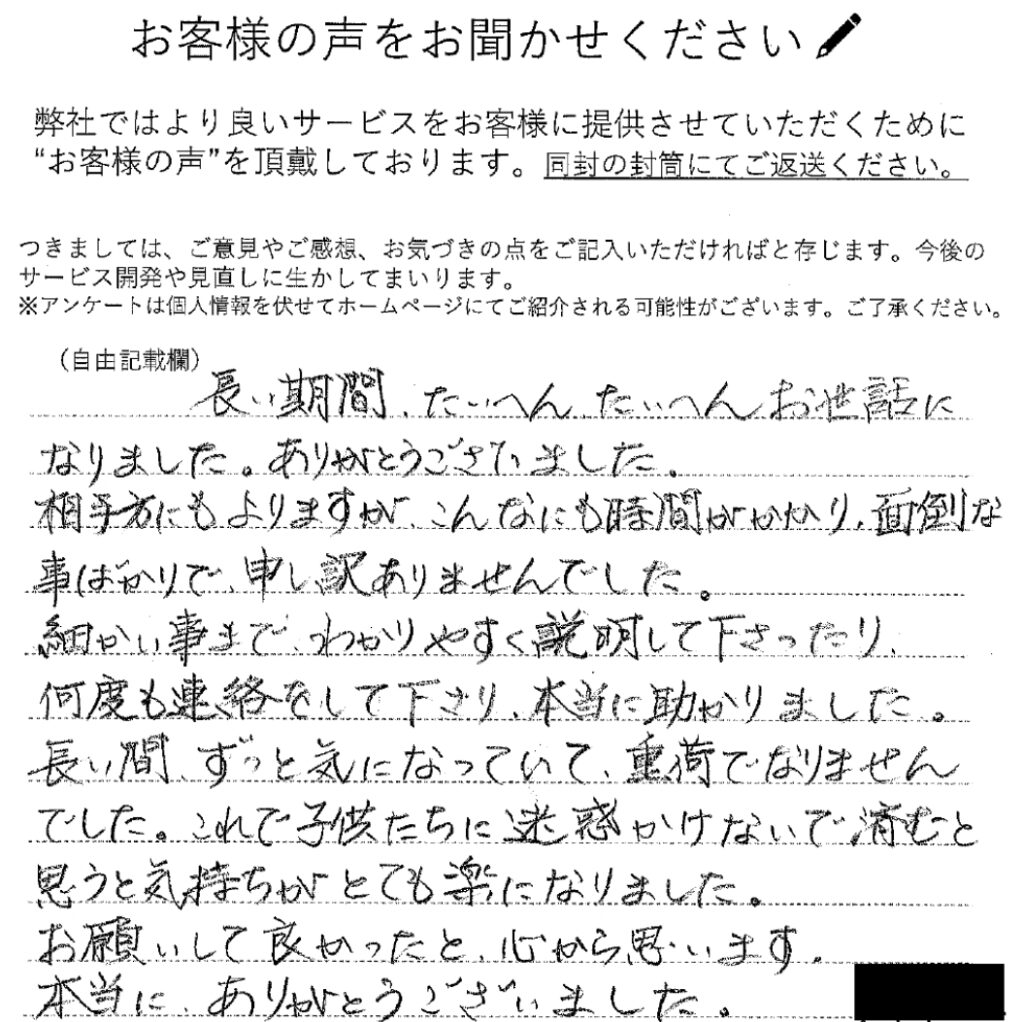 お客様の声をお聞かせください
弊社ではより良いサービスをお客様に提供させていただくために
“お客様の声”を頂戴しております。同封の封筒にてご返送ください。
つきましては、ご意見やご感想、お気づきの点をご記入いただければと存じます。今後の
サービス開発や見直しに生かしてまいります。
※アンケートは個人情報を伏せてホームページにてご紹介される可能性がございます。ご了承ください。
（自由記載欄）
長い期間、たいへん、たいへんお世話に
なりました。ありがとうございました。
相手方にもよりますが、こんなにも時間がかかり、面倒な
事ばかりで、申し訳ありませんでした。
細かい事まで、わかりやすく説明して下さったり、
何度も連絡をして下さり、本当に助かりました。
長い間、ずっと気になっていて、重荷でなりません
でした。これで子供たちに迷惑かけないで済むと
思うと気持ちがとても楽になりました。
お願いして良かったと、心から思います。
本当に、ありがとうございました。